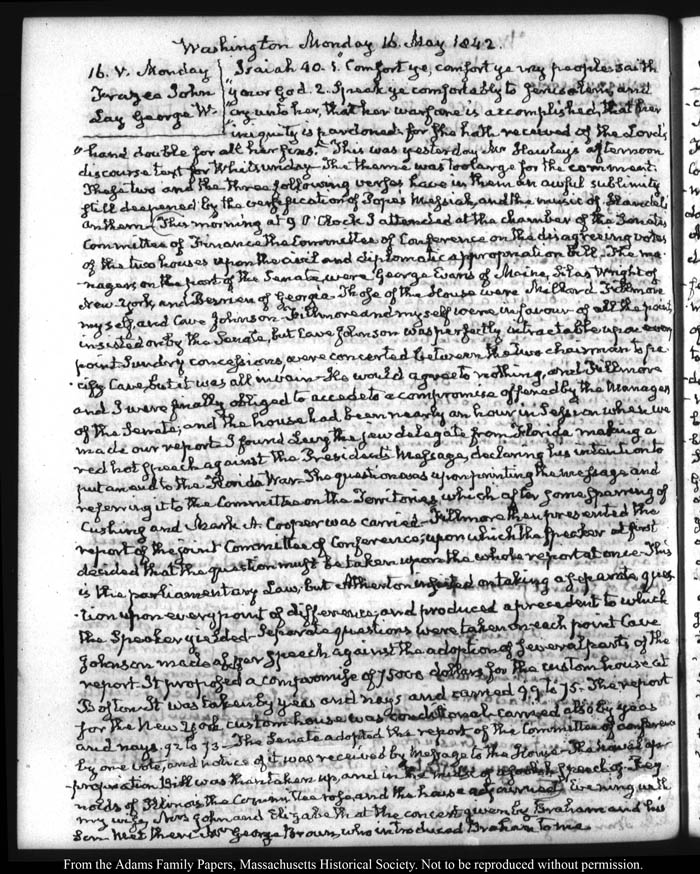 Washington Monday 16. May 1842.
16. V. Monday
Frazee John
Lay George W.
Isaiah 40. 1. "Comfort ye, comfort ye my people, saith
"your God. 2. Speak ye comfortably to Jerusalem, and
"cry unto her, that her warfare is accomplished, that her
"iniquity is pardoned: for she hath received of the Lord's
"hand double for all her sins." This was yesterday Mr Hawley's afternoon
discourse text for Whitsunday. The theme was too large for the comment.
These two and the three following verses have in them an awful sublimity
still deepened by the versification of Pope's Messiah, and the music of Handel's
anthem. This morning at 9 O'Clock I attended at the chamber of the Senate's
Committee of Finance the Committee of Conference on the disagreeing votes
of the two houses upon the civil and diplomatic appropriation bill. The ma-
nagers on the part of the Senate were George Evans of Maine, Silas Wright of
New-York, and Berrien of Georgia. Those of the House were Millard Fillmore
myself, and Cave Johnson. Fillmore and myself were in favour of all the points
insisted on by the Senate, but Cave Johnson was perfectly intractable upon every
point. Sundry concessions, were concerted between the two chairmen to pa-
cify Cave, but it was all in vain. He would agree to nothing, and Fillmore
and I were finally obliged to accede to a compromise offered by the Managers
of the Senate; and the house had been nearly an hour in Session when we
made our report. I found Levy the jew delegate from Florida making a
red hot speech against the President's Message, declaring his intention to
put an end to the Florida War. The question was upon printing the message and
referring it to the Committee on the Territories, which after some sparring of
Cushing and Mark A. Cooper was carried. Fillmore then presented the
report of the joint Committee of Conference, upon which the Speaker at first
decided that the question must be taken upon the whole report at once. This
is the parliamentary Law; but Atherton insisted on taking a separate ques
-tion upon every point of difference; and produced a precedent to which
the Speaker yielded. Separate questions were taken on each point. Cave
Johnson made a speech against the adoption of several parts of the
report. It proposed a compromise of 75000 dollars for the custom house at
Boston. It was taken by yeas and nays and carried 99 to 75. The report
for the New York custom-house was conditional. carried also by yeas
and nays. 92 to 73. The Senate adopted the report of the Committee of conference
by one vote, and notice of it was received by Message to the House. The house ap
-propriation Bill was then taken up, and in the midst of a foolish speech of Rey
nolds of Illinois the Committee rose, and the house adjourned. Evening with
my wife, Mrs John and Elizabeth at the concert given by Braham and his
Son. Met there Mr George Brown, who introduced Braham to me.
From the Adams Family Papers, Massachusetts Historical Society. Not to be reproduced without permission.